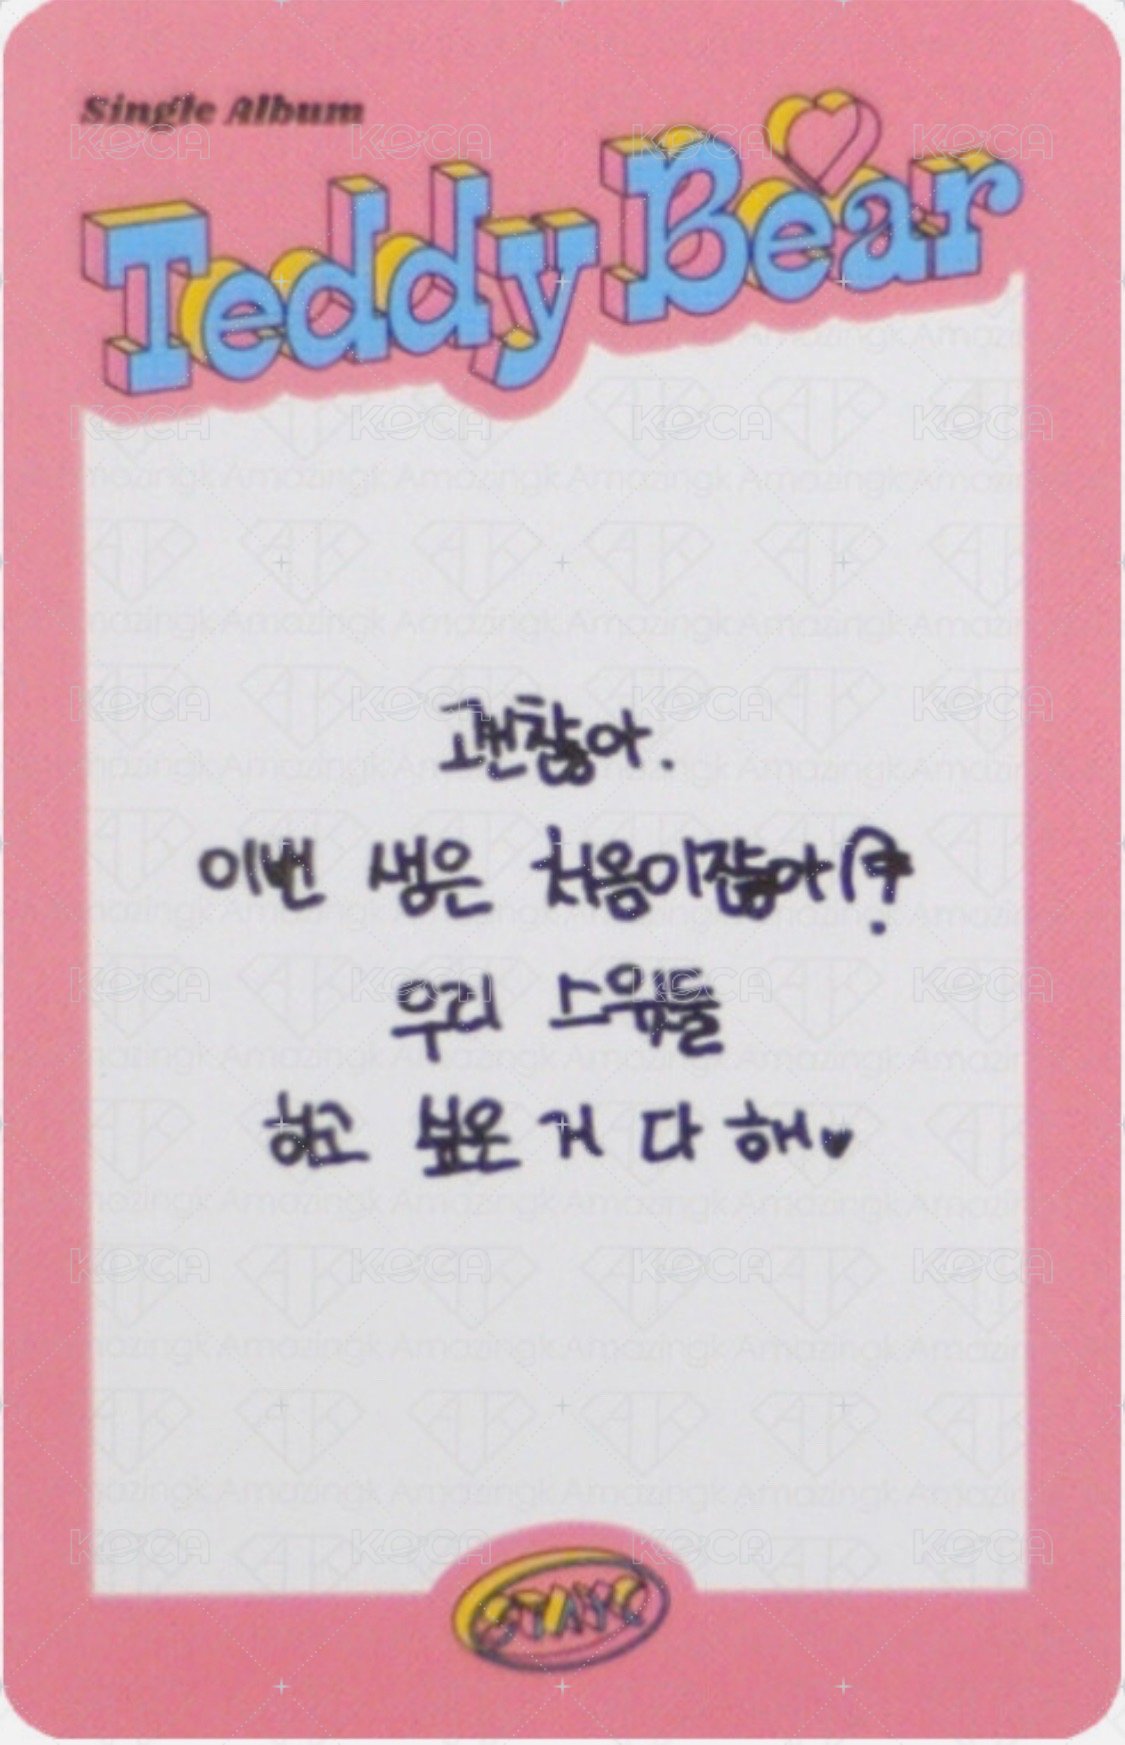 Single Album
Teddy Bear
괜찮아.
이번 생은 처음이잖아!?
우리 스윗들
하고 싶은 거 다 해♥
STAYC
KOCA
Amazingk
AK